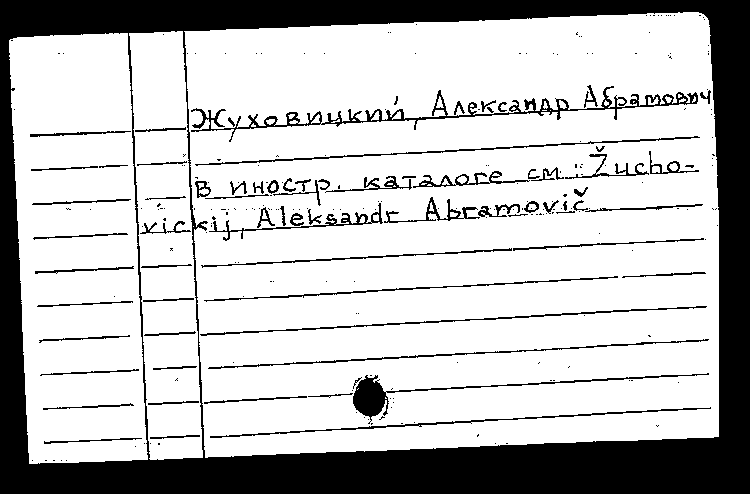 Жуховицкий, Александр Абрамович
В иностр. каталоге см.: Žucho-
vickij, Aleksandr Abramovič